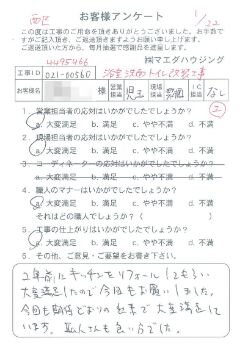 西区
お客様アンケート
1/22
この度は工事のご用命を頂きありがとうございました。お手数で
すがご記入頂き、ご返送頂けますようお願い申し上げます。
ご返送頂いた方から、毎月抽選で感謝品を送呈します。
4495466
㈱マエダハウジング
工事ID 021-00560 浴室 洗面 トイレ改装工事
お客様名 様 営業担当 児玉 現場担当 担当 なし
1. 営業担当者の応対はいかがでしたでしょうか?
a. 大変満足 b. 満足 c. やや不満 d. 不満
2. 現場担当者の応対はいかがでしたでしょうか?
a. 大変満足 b. 満足 c. やや不満 d. 不満
3. コーディネーターの応対はいかがでしたでしょうか?
a. 大変満足 b. 満足 c. やや不満 d. 不満
4. 職人のマナーはいかがでしたでしょうか?
a. 大変満足 b. 満足 c. やや不満 d. 不満
それはどの職人でしょうか?( )
5. 工事の仕上がりはいかがでしたでしょうか?
a. 大変満足 b. 満足 c. やや不満 d. 不満
6. その他、ご意見・ご要望をお書き下さい。
2年前にキッチンをリフォームしてもらい
大変満足したので今回もお願いしました。
今回も期待どおりの結果で大変満足して
います。職人さんも良い方でした。